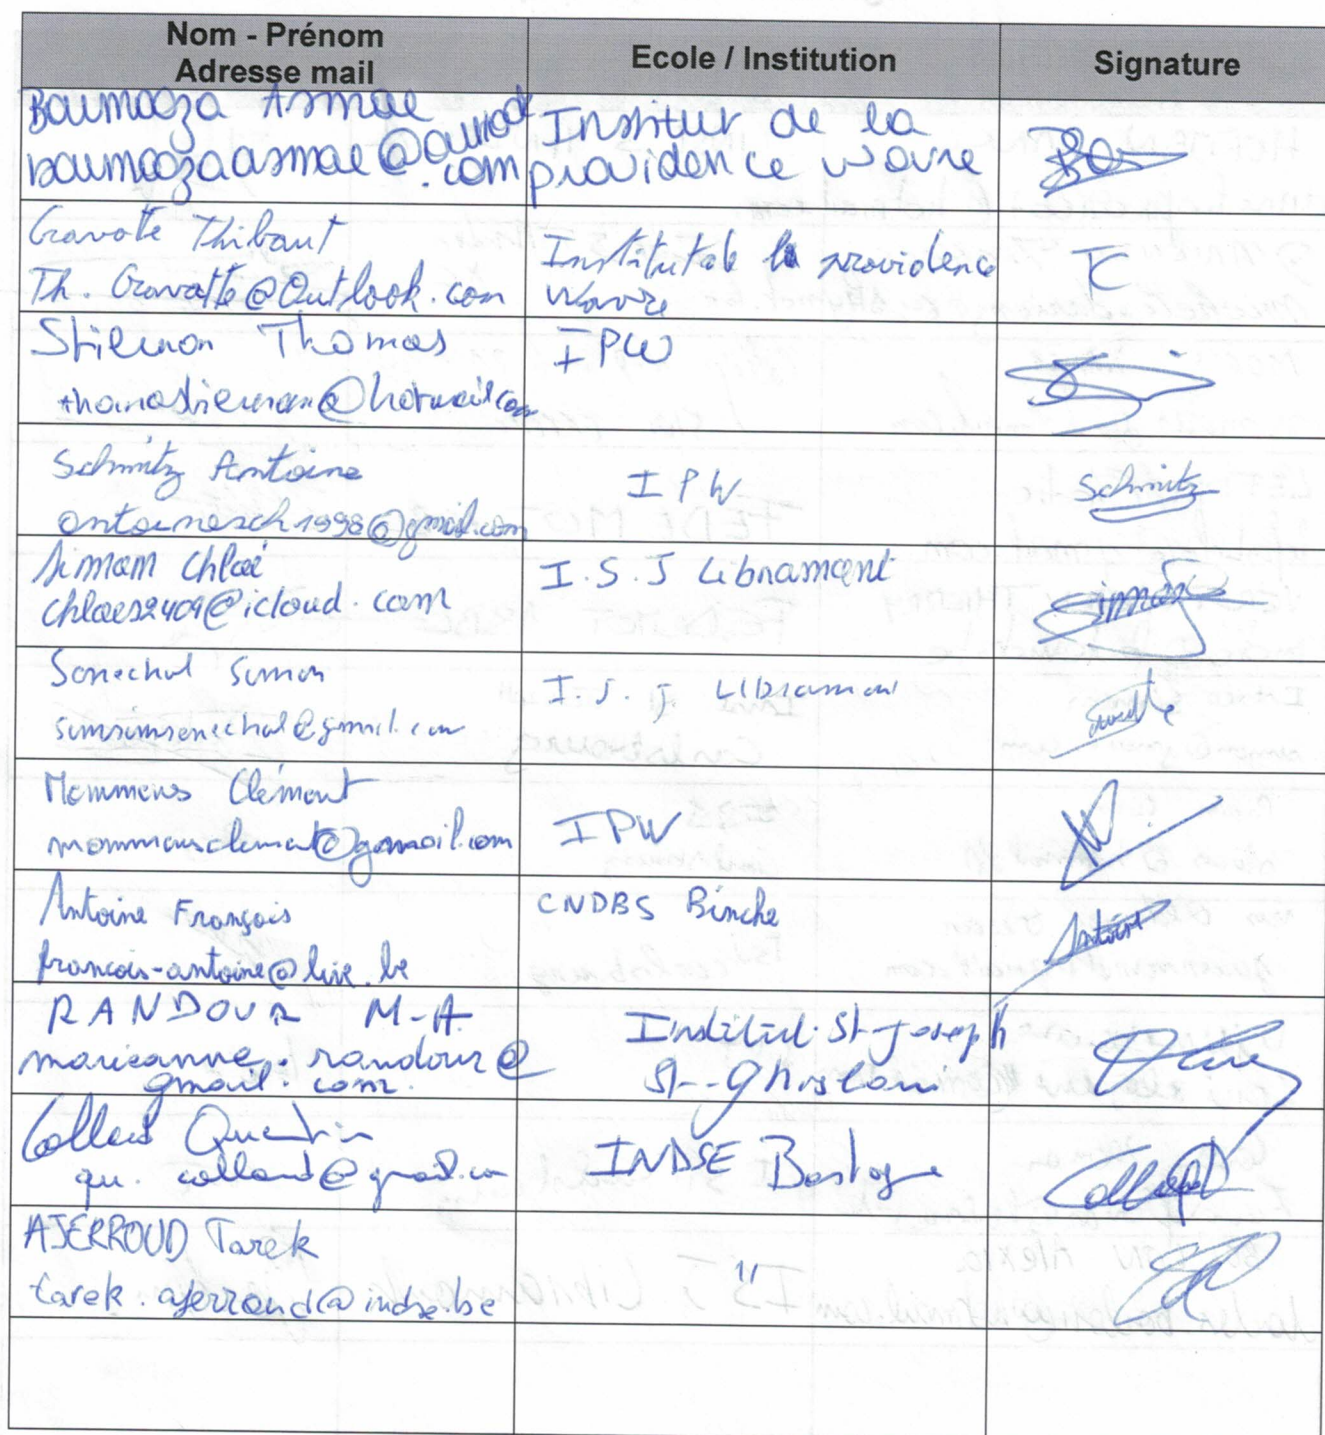 Nom - Prénom
Adresse mail
Ecole / Institution
Signature
Boumazza Asmae
boumazzaasmae@outlook
.com
Institut de la
providence wavre
Cravatte Thibaut
Th.Cravatte@Outlook.com
Institut de la providence
Wavre
TC
Stiennon Thomas
@hotmail.com
IPW
Schmitz Antoine
antoinesch1998@gmail.com
IPW
Schmitz
Simam Chloé
chloes2409@icloud.com
I.S.J Libramont
Senechal Simon
simsimsenechal@gmail.com
I.S.J Libramont
Mommens Clément
mommensclement@gmail.com
IPW
Antoine François
francois-antoine@live.be
CNDBS Binche
Antoine
RANDOUR M-A.
marieanne.randour@
gmail.com.
Institut St-Joseph
St-Ghislain
Collard Quentin
qu.collard@gmail.com
INDSE Bastogne
AJERROUD Tarek
tarek.ajerroud@indse.be
"